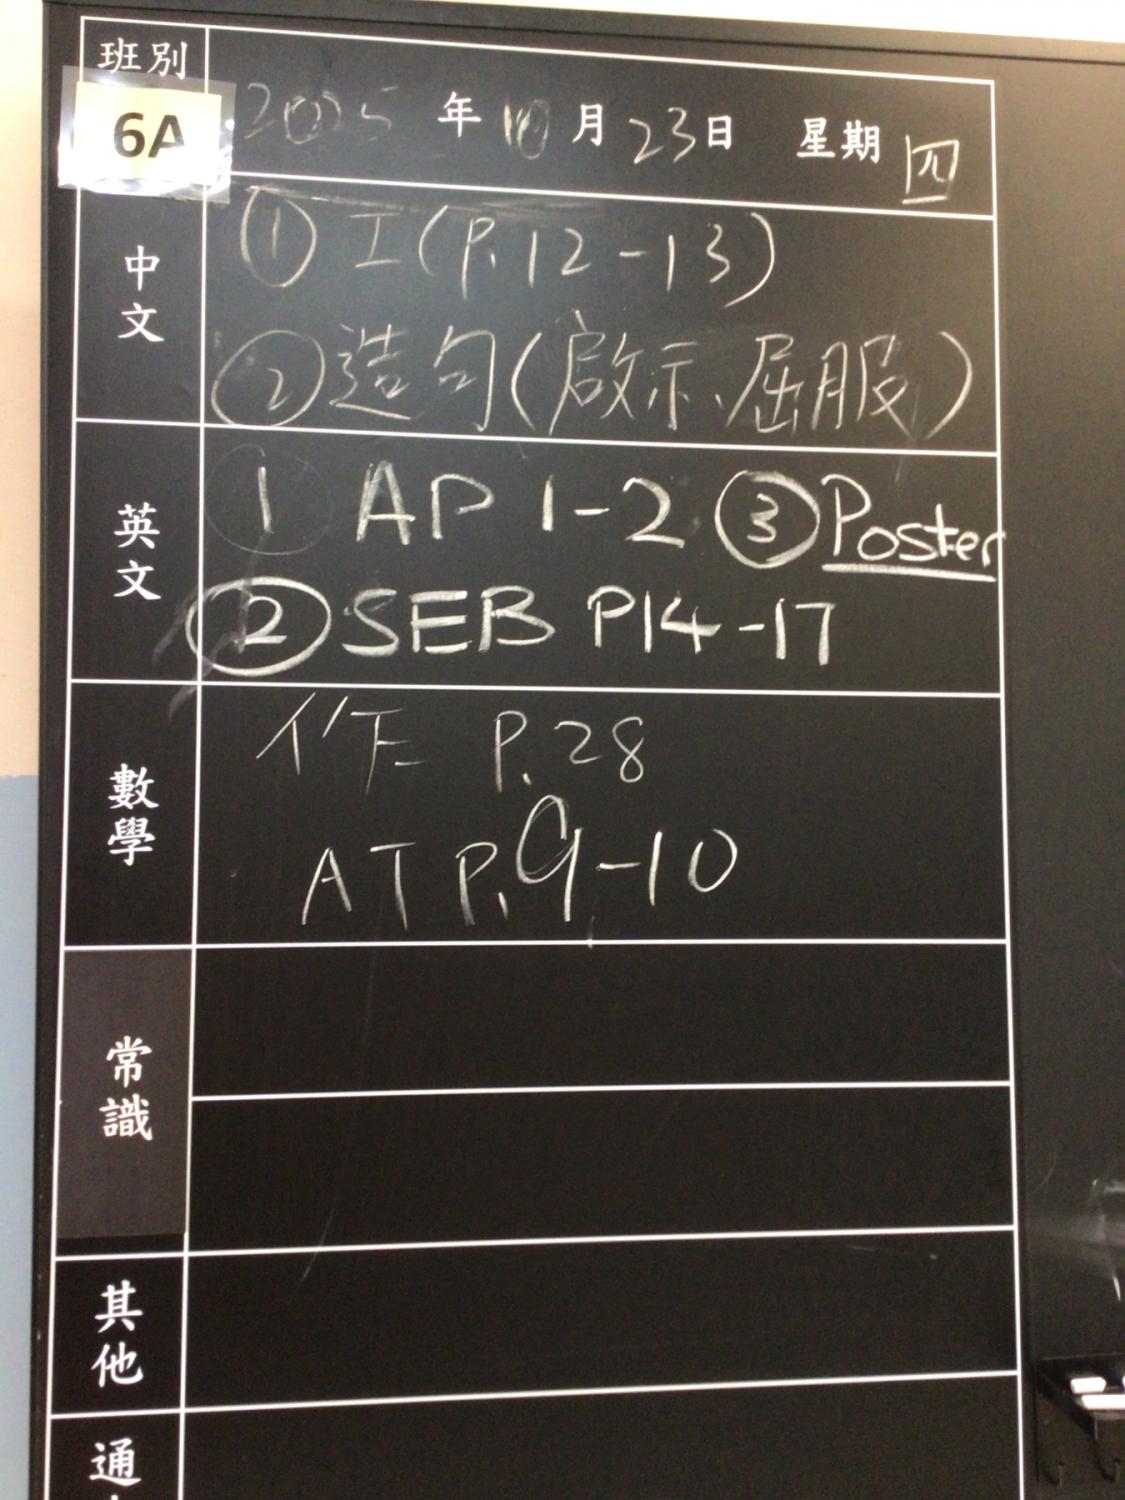 班別
6A
2025年10月23日 星期四
中文
① I(P.12-13)
② 造句(啟示、屈服)
英文
① AP 1-2 ③ Poster
② SEB P14-17
數學
作 P.28
AT P.9-10
常識
其他
通